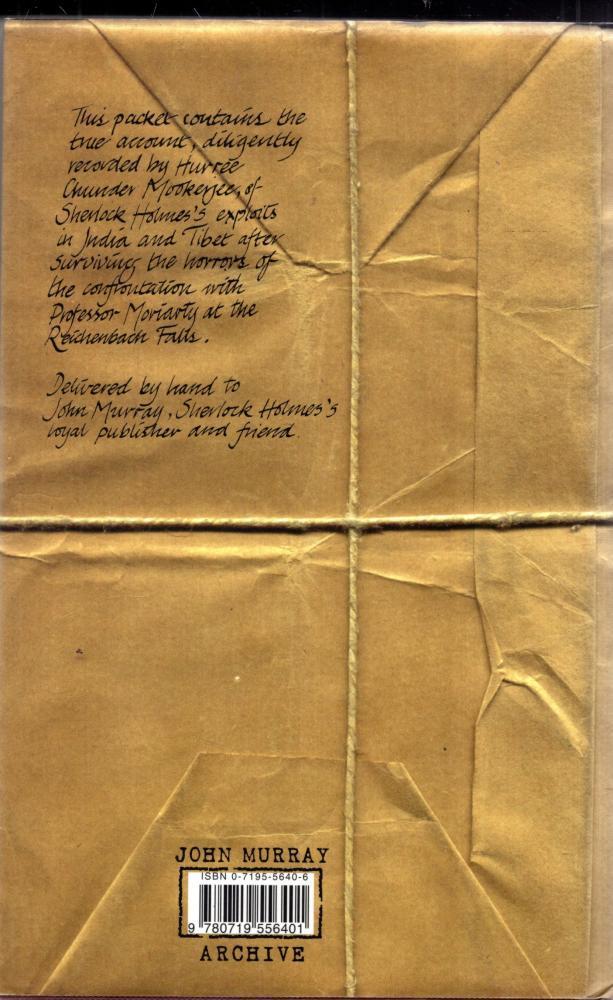 This packet contains the
true account, diligently
recorded by Hurree
Chunder Mookerjee, of
Sherlock Holmes's exploits
in India and Tibet after
surviving the horrors of
the confrontation with
Professor Moriarty at the
Reichenbach Falls.
Delivered by hand to
John Murray, Sherlock Holmes's
loyal publisher and friend.
JOHN MURRAY
ISBN 0-7195-5640-6
9 780719 556401
ARCHIVE